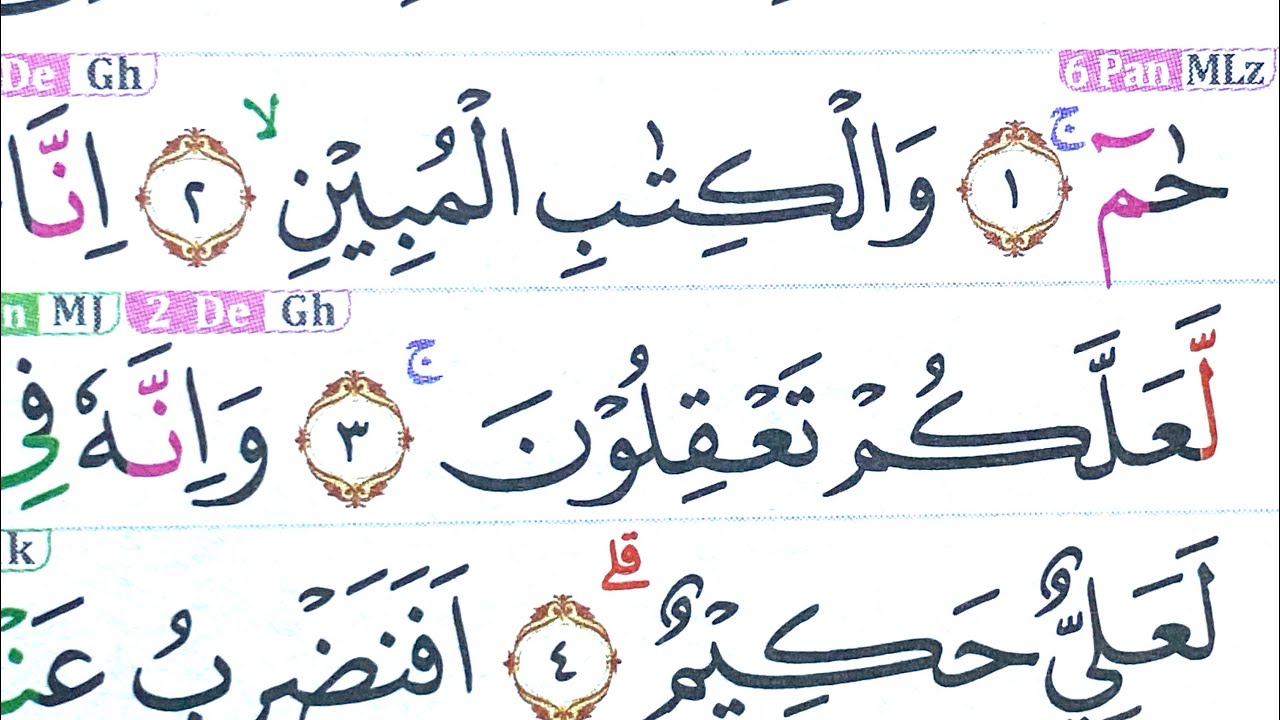 6 Pan MLz De Gh
حٰمۤ ۚ ١ وَالْكِتٰبِ الْمُبِيْنِ ۙ ٢ اِنَّا
2 De Gh n MJ
لَّعَلَّكُمْ تَعْقِلُوْنَ ۚ ٣ وَاِنَّهٗ فِيْ
k
لَعَلِيٌّ حَكِيْمٌ ۗ ٤ اَفَنَضْرِبُ عَنْ